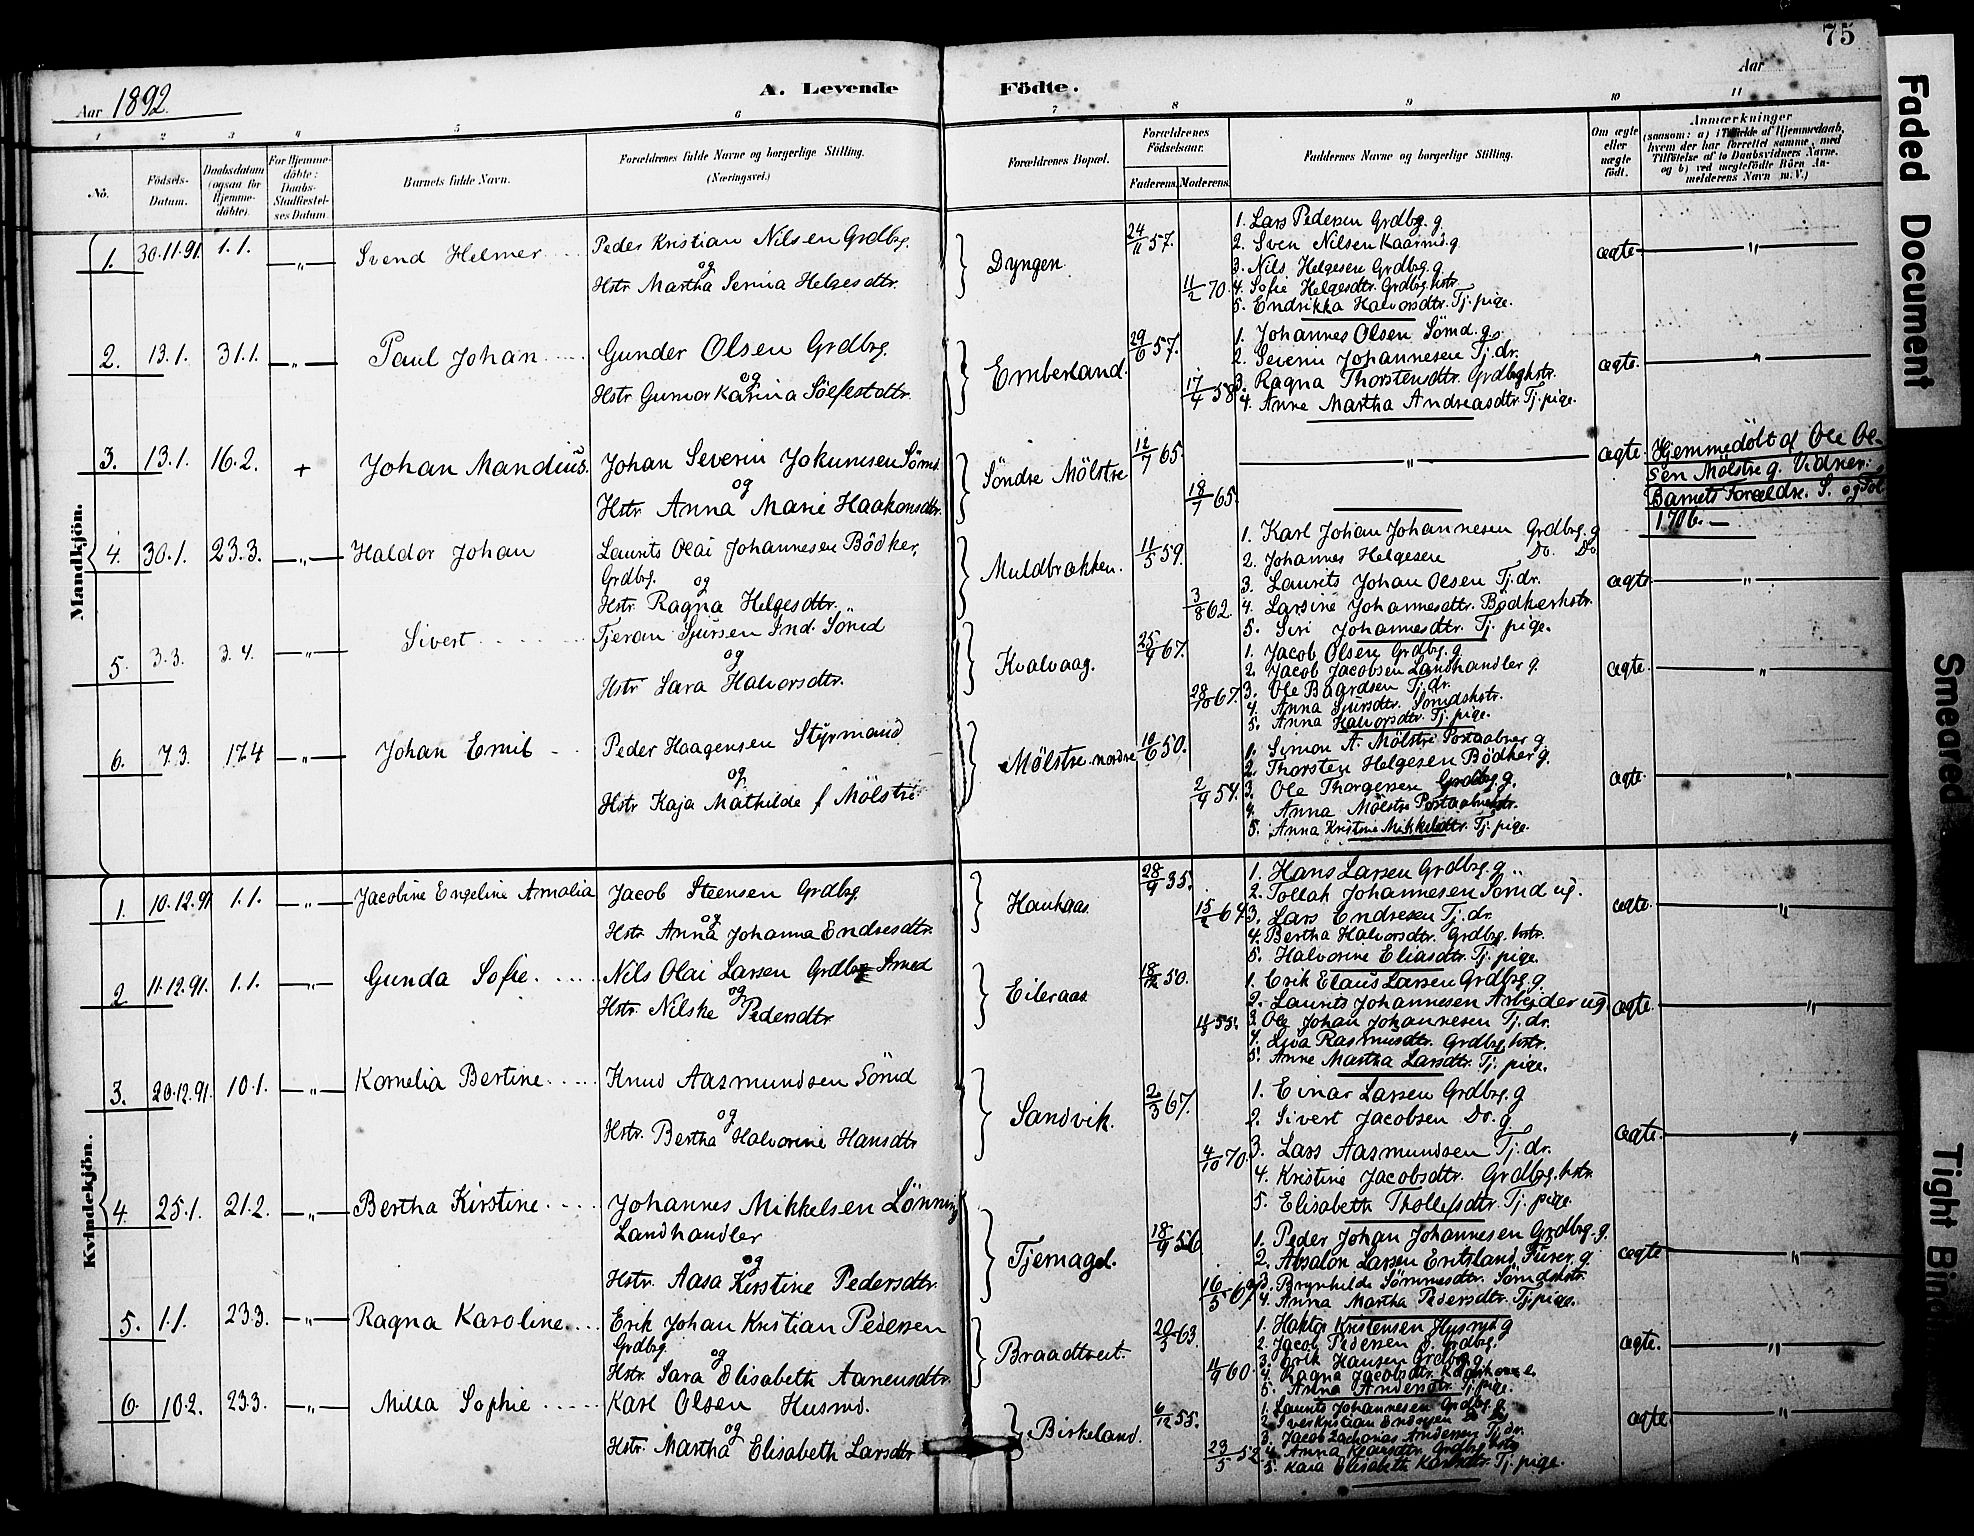 75
Aar 1892.
A. Levende Födte.
Aar
1 2 3 4 5 6 7 8 9 10 11
No.
Födsels-Datum.
Daabsdatum (ogsaa for Hjemme-döbte).
For Hjemme-döbte: Daabs-Stadfæstel-ses Datum.
Barnets fulde Navn.
Forældrenes fulde Navne og borgerlige Stilling.
(Næringsvei.)
Forældrenes Bopæl.
Forældrenes Födselsaar.
Faderens. Moderens.
Faddernes Navne og borgerlige Stilling.
Om ægte eller uægte födt.
Anmærkninger
(saasom: a) i Tilfælde af Hjemmedaab, hvem der har forrettet samme, med Tilföielse af to Daabsvidners Navne, og b) ved uægtefödte Börn An-melderens Navn m. V.)
Mandkjön.
1. 30.11.91. 1.1. „ Svend Helmer
Peder Kristian Nilsen Grdbrg.
og
Hstr Martha Serina Helgesdtr.
Dyngen
24/11 57.
11/2 70
1. Lars Pedersen Grdbrg. g.
2. Sven Nilsen Kaarmd. g
3. Nils Helgesen Grdbrg. g
4. Sofie Helgesdtr. Grdbrg. hstr.
5. Endrikka Halvorsdtr. Tj. pige.
ægte „
2. 13.1. 31.1. „ Paul Johan
Gunder Olsen Grdbrg.
og
Hstr Gunvor Karina Solfestdtr.
Emberland.
29/6 57.
17/4 58
1. Johannes Olsen Sömd. g.
2. Severin Johannesen Tj. dr.
3. Ragna Thorstensdtr. Grdbrghstr.
4. Anne Martha Andreasdtr. Tj. pige.
ægte. „
3. 13.1. 16.2. + Johan Mandius.
Johan Severin Jokumsen Sömd
og
Hstr Anna Marie Haakonsdtr.
Söndre Mölstre
12/7 65.
18/7 65
„
ægte.
Hjemmedöbt af Ole Ol-
sen Mölstre g. Vidner:
Barnets Forældre. S. og Föl
1706.—
4. 30.1. 23.3. „ Haldor Johan
Laurits Olai Johannesen Bödker,
Grdbrg.
og
Hstr. Ragna Helgesdtr.
Muldbrækken.
11/5 59.
3/8 62
1. Karl Johan Johannesen Grdbrg. g
2. Johannes Helgesen Do. Do
3. Laurits Johan Olsen Tj. dr.
4. Larsine Johannesdtr. Bødkerhstr.
5. Siri Johannesdtr. Tj. pige.
ægte „
5. 3.3. 3.4. „ Sivert
Tjeran Sjursen Ind. Sömd
og
Hstr Sara Halvorsdtr.
Kvalvaag.
25/9 67.
28/10 67.
1. Jacob Olsen Grdbrg. g
2. Jacob Jacobsen Landhandler g.
3. Ole Baardsen Tj. dr.
4. Anna Sjursdtr. Sömdshstr.
5. Anna Halvorsdtr. Tj. pige.
ægte. „
6. 7.3. 17.4 „ Johan Emil
Peder Haagensen Styrmand
og
Hstr Kaja Mathilde f Mölstre
Mölstre nordre
10/6 50.
2/9 54.
1. Simon A. Mölstre Postaabner g
2. Thorsten Helgesen Bödker g.
3. Ole Thorgersen Grdbrg. g.
4. Anna Mölstre Postaabnerhstr.
5. Anna Kristine Mikkelsdtr. Tj. pige.
ægte. „
Kvindekjön.
1. 10.12.91 1.1. „ Jacobine Engeline Amalia
Jacob Steensen Grdbrg.
og
Hstr. Anna Johanna Endresdtr.
Haukaas
28/9 35.
15/2 64
1. Hans Larsen Grdbrg. g
2. Tollak Johannesen Sömd ug.
3. Lars Endresen Tj. dr.
4. Bertha Halvorsdtr. Grdbrg. hstr.
5. Halvorine Eliasdtr. Tj. pige.
ægte. „
2 11.12.91. 1.1. „ Gunda Sofie.
Nils Olai Larsen Grdbrg Smed
og
Hstr. Nilske Pedersdtr
Eileraas
18/12 50.
4/3 55.
1. Erik Elaus Larsen Grdbrg. g
2. Laurits Johannesen Arbeider ug
3. Ole Johan Johannesen Tj. dr.
4. Liva Rasmusdtr. Grdbrg. hstr.
5. Anne Martha Larsdtr. Tj. pige.
ægte. „
3. 20.12.91. 10.1. „ Kornelia Bertine
Knud Aasmundsen Sömd
og
Hstr. Bertha Halvorine Hansdtr
Sandvik.
2/3 67.
4/10 70.
1. Einar Larsen Grdbrg. g
2. Sivert Jacobsen Do. g
3. Lars Aasmundsen Tj. dr.
4. Kristine Jacobsdtr. Grdbrg. hstr.
5. Elisabeth Thollefsdtr. Tj. pige
ægte. „
4. 25.1. 21.2. „ Bertha Kirstine
Johannes Mikkelsen Lönning
Landhandler
og
Hstr. Aasa Kirstine Pedersdtr.
Tjernagel.
18/9 56
16/5 67
1. Peder Johan Johannesen Grdbrg. g.
2. Absalon Larsen Eritsland Furer. g.
3. Brynhilde Sömmesdtr. Sömdshstr.
4. Anna Martha Pedersdtr. Tj. pige.
ægte „
5. 1.1. 23.3. „ Ragna Karoline
Erik Johan Kristian Pedersen
Grdbrg.
og
Hstr. Sara Elisabeth Aanensdtr.
Braadtveit.
20/3 63.
4/9 60.
1. Haktor Kristensen Husmd g
2. Jacob Pedersen g. Grdbrg.
3. Erik Hansen Grdbrg g
4. Ragna Jacobsdtr.
5. Anna Andersdtr. Tj. pige.
ægte. „
6. 10.2. 23.3. „ Milla Sophie
Karl Olsen Husmd.
og
Hstr. Martha Elisabeth Larsdtr
Birkeland.
6/12 55.
23/5 52
1. Laurits Johannesen Grdbrg. g
2. Iver Kristian Endresen Do Do
3. Jacob Zacharias Andersen Tj. dr.
4. Anna Klausdtr. Grdbrg hstr
5. Kaia Elisabeth Karlsdtr. Tj. pige.
ægte „
Faded Document
Smeared
Tight Bin